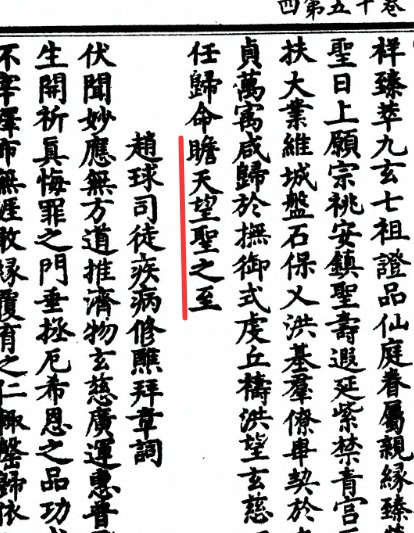 卷十五第四
祥臻萃九玄七祖證品仙庭眷屬親緣臻
聖日上願宗祧安鎮聖壽遐延紫禁青宮
扶大業維城盤石保乂洪基羣僚畢契於
貞萬寓咸歸於撫御式虔丘禱洪望玄慈
任歸命瞻天望聖之至
趙球司徒疾病修醮拜章詞
伏聞妙應無方道推濟物玄慈廣運惠普
生開祈真悔罪之門垂拯厄希恩之品功
不宰澤布無涯敢緣覆育之仁輒罄歸依